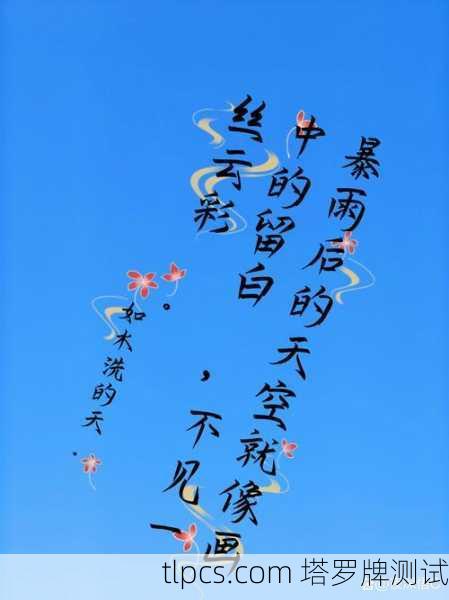 暴雨后的天空就像画
中的留白，不见一
丝云彩。
如木洗的天.
tlpcs.com 塔罗牌测试